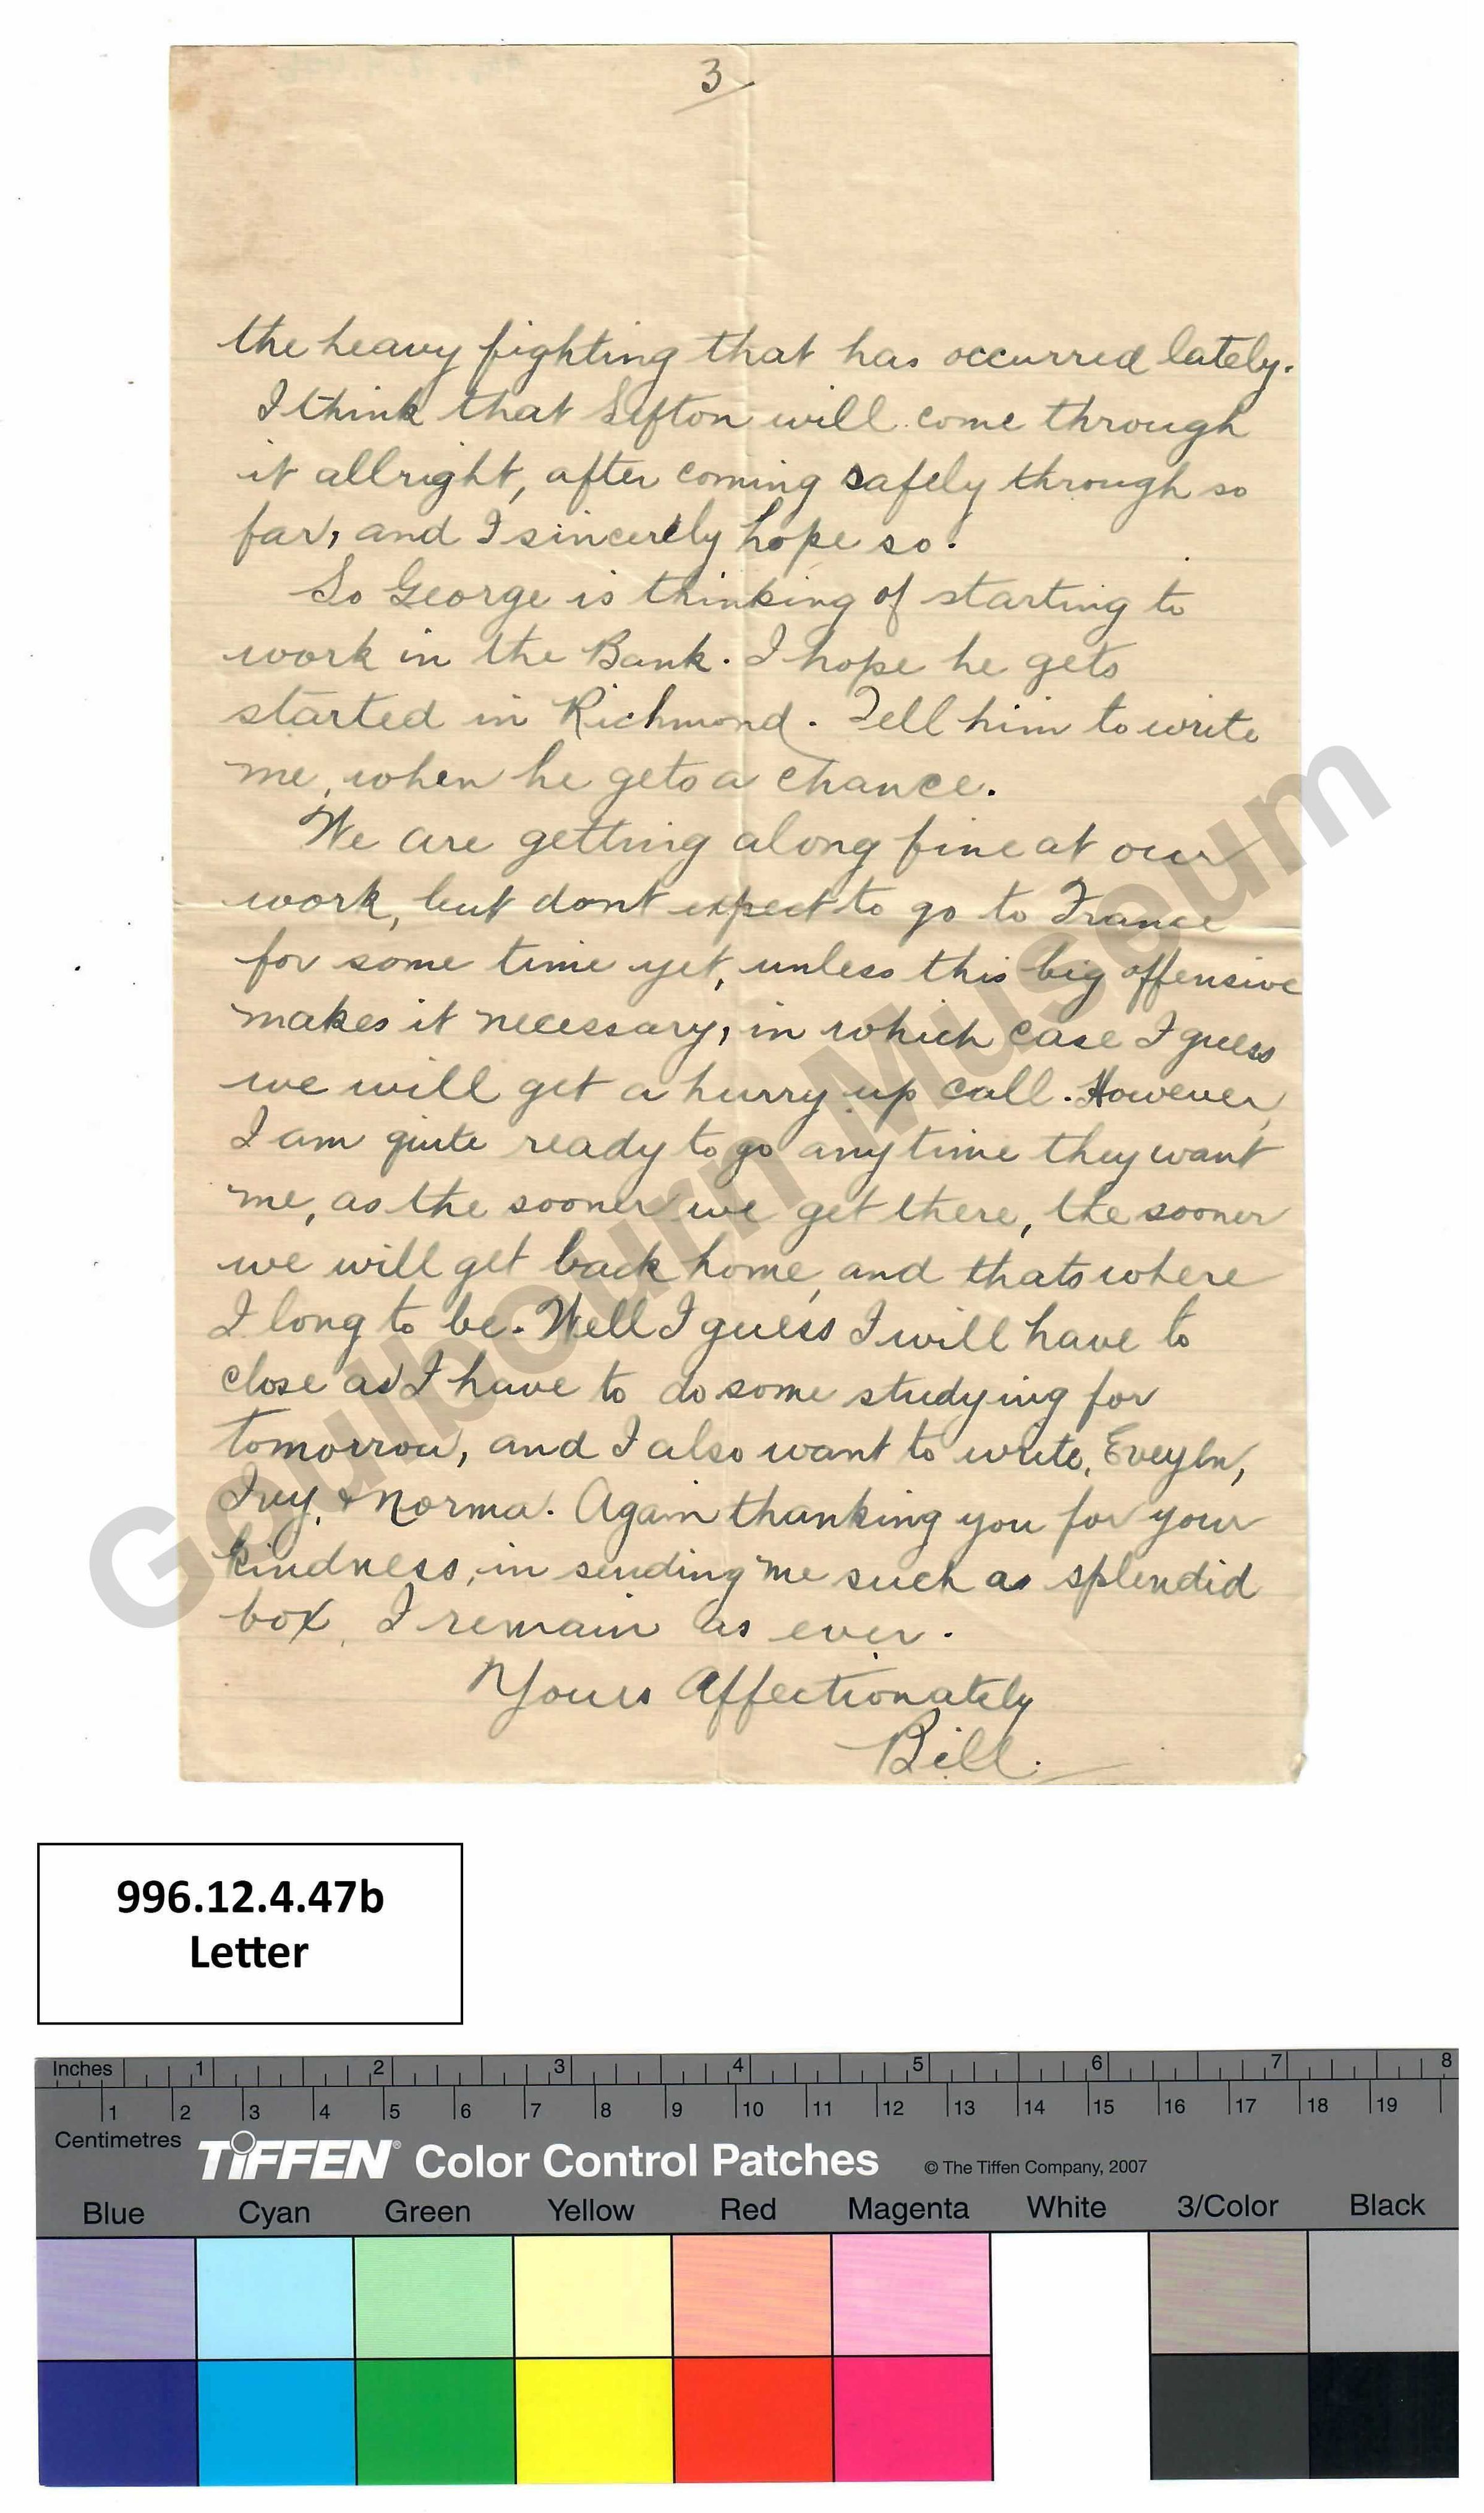 3
the heavy fighting that has occurred lately.
I think that Sifton will come through
it allright, after coming safely through so
far, and I sincerely hope so.
So George is thinking of starting to
work in the Bank. I hope he gets
started in Richmond. Tell him to write
me, when he gets a chance.
We are getting along fine at our
work, but dont expect to go to France
for some time yet, unless this big offensive
makes it necessary, in which case I guess
we will get a hurry up call. However,
I am quite ready to go any time they want
me, as the sooner we get there, the sooner
we will get back home, and thats where
I long to be. Well I guess I will have to
close as I have to do some studying for
tomorrow, and I also want to write, Eveyln,
Ivy, & Norma. Again thanking you for your
kindness, in sending me such as splendid
box, I remain as ever.
Yours Affectionately
Bill.
Goulbourn Museum
996.12.4.47b
Letter
Inches 1 2 3 4 5 6 7 8
1 2 3 4 5 6 7 8 9 10 11 12 13 14 15 16 17 18 19
Centimetres
TIFFEN® Color Control Patches © The Tiffen Company, 2007
Blue Cyan Green Yellow Red Magenta White 3/Color Black